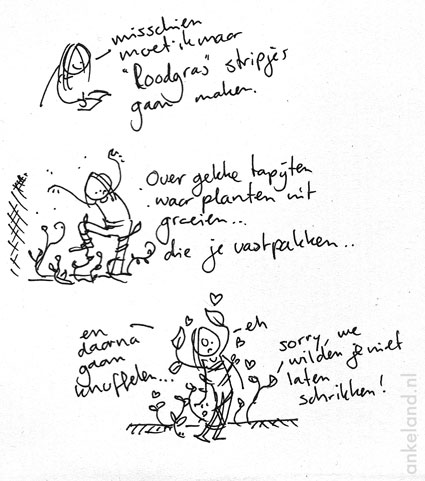 misschien
moet ik maar
"Roodgras" stripjes
gaan maken.
Over gekke tapijten
waar planten uit
groeien...
die je vastpakken..
en
daarna
gaan
knuffelen...
eh
sorry, we
wilden je niet
laten
schrikken!
ankeland.nl